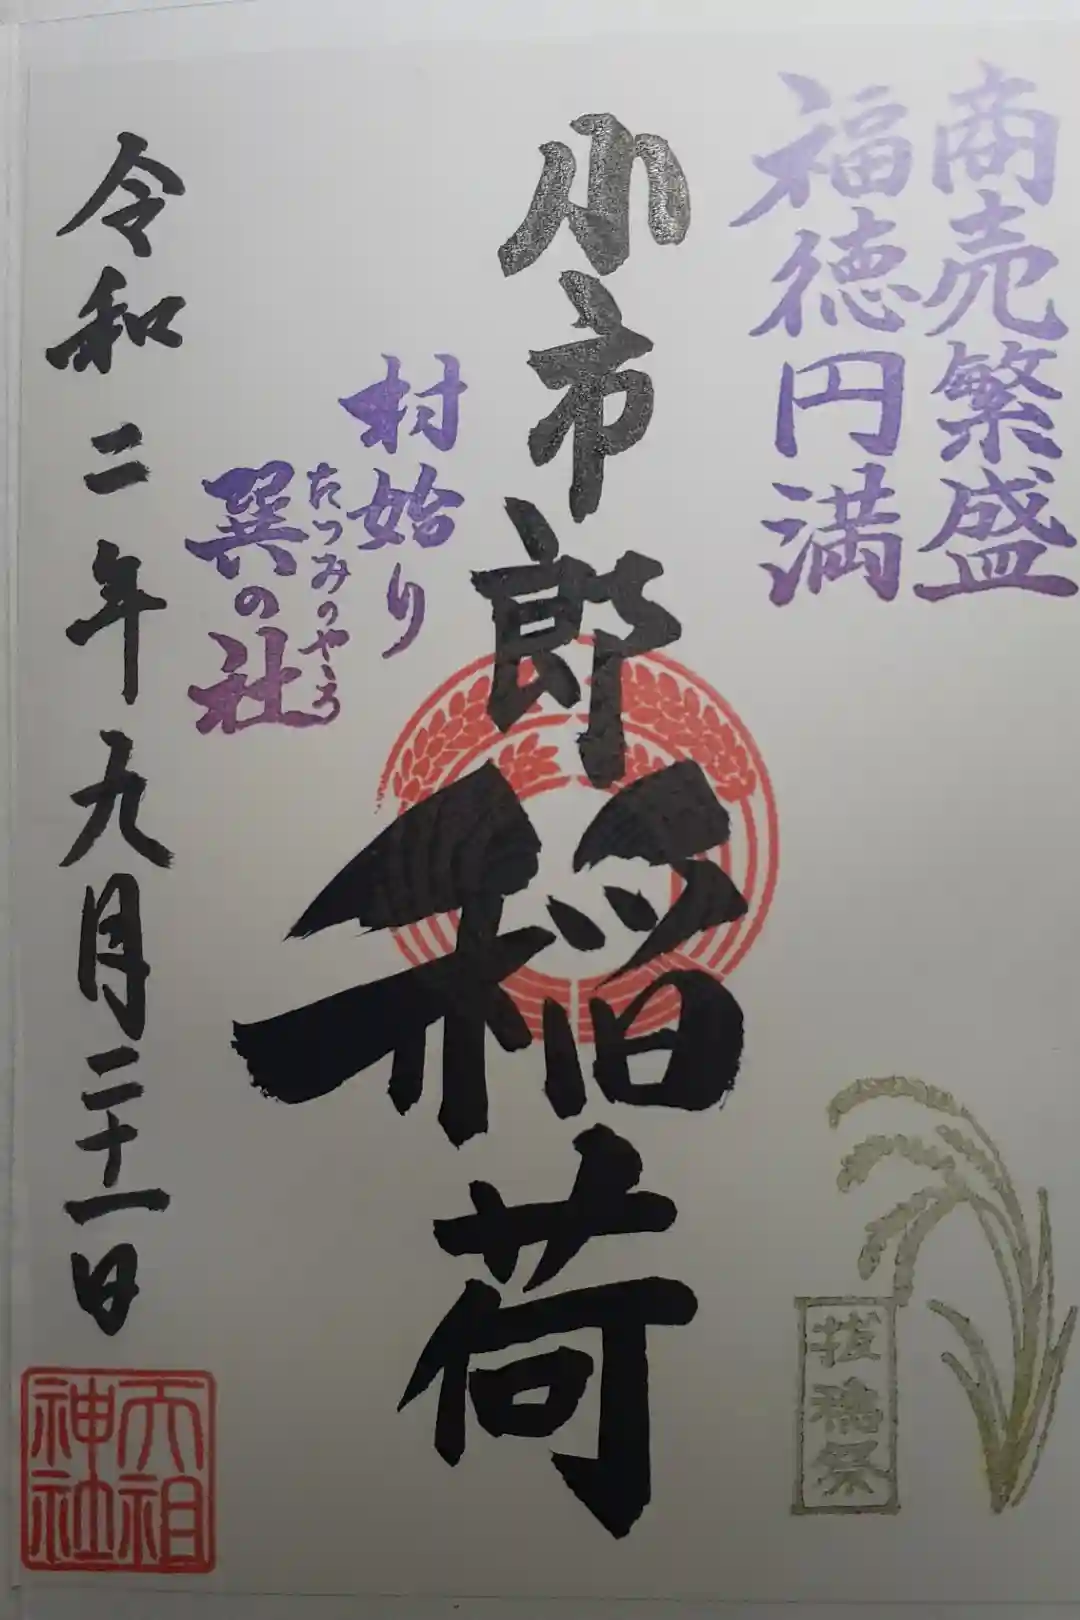 商売繁盛
福徳円満
小市郎稲荷
村始り
たつみのやしろ
巽の社
令和二年九月二十一日
抜穂祭
天祖
神社